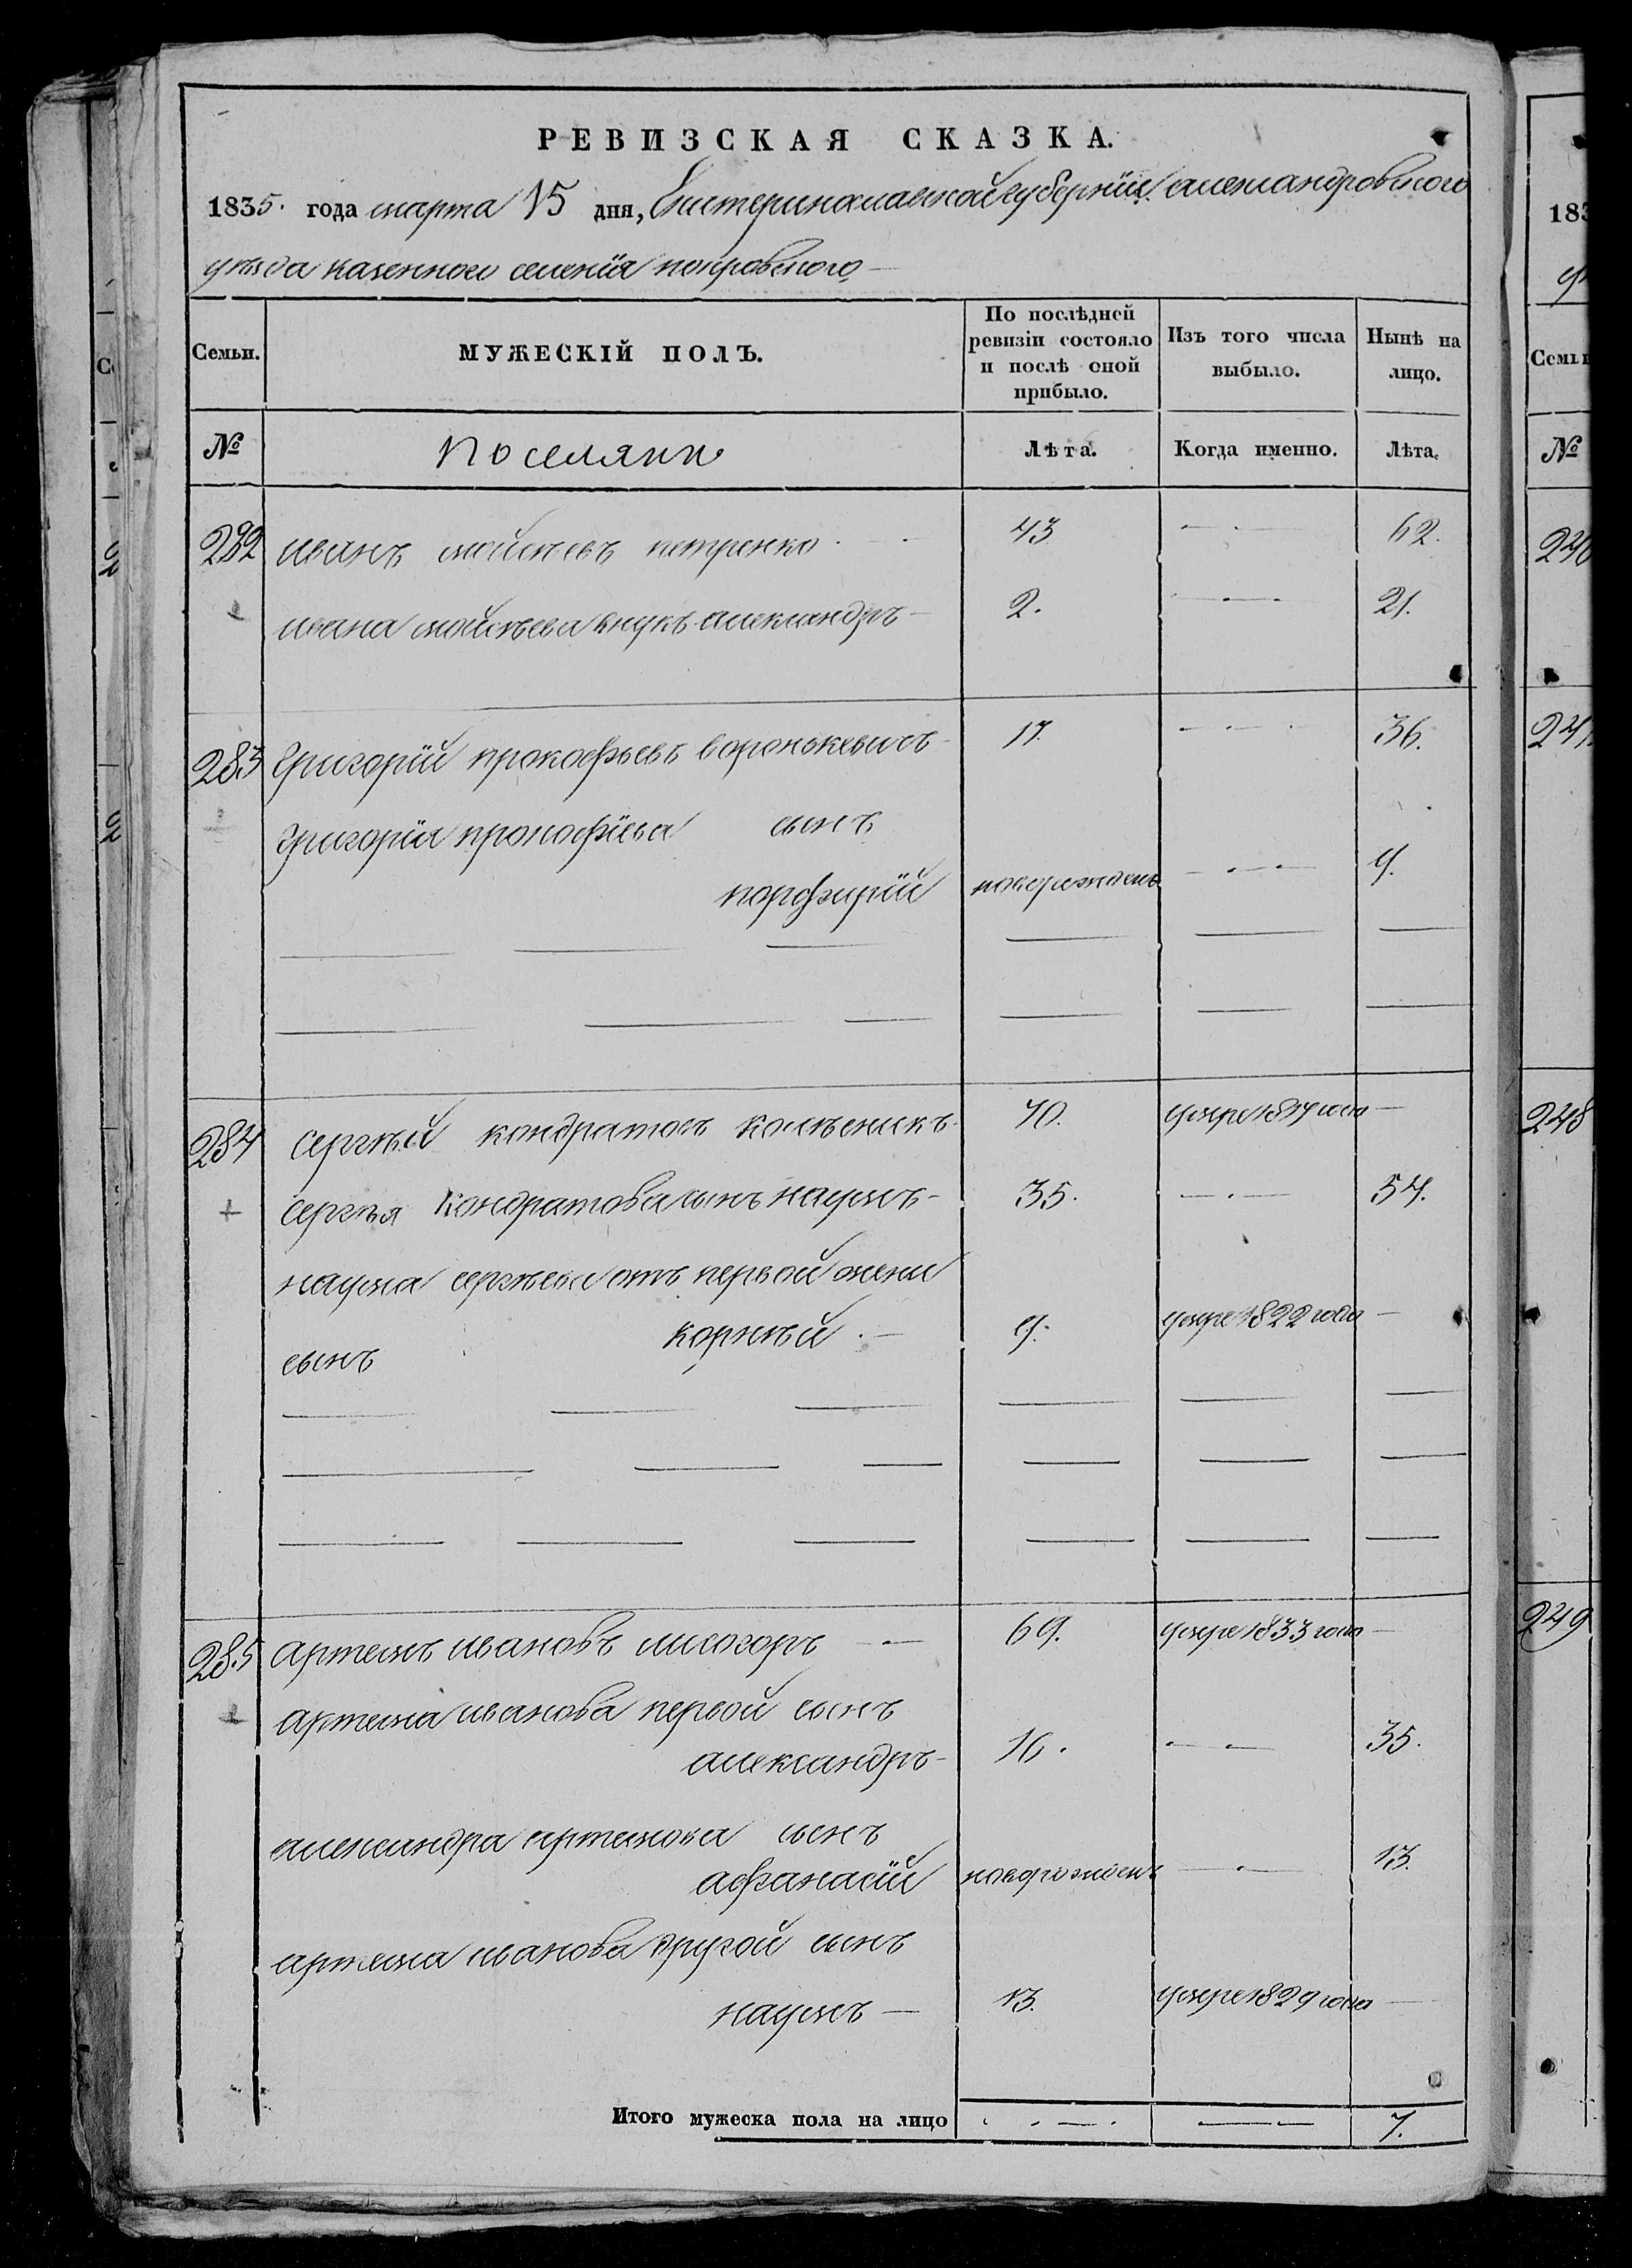 РЕВИЗСКАЯ СКАЗКА.
1835. года марта 15 дня, Екатеринославской губерніи александровского
уѣзда казенного селенія покровского
Семьи.
МУЖЕСКІЙ ПОЛЪ.
По послѣдней ревизіи состояло и послѣ оной прибыло.
Изъ того числа выбыло.
Нынѣ на лицо.
№ Поселяни Лѣта. Когда именно. Лѣта.
282 иванъ мойсѣевъ петренко 43 — 62.
ивана мойсѣева внукъ александръ 2. — 21.
283 Григорій прокофьевъ воронькевичъ 17. — 36.
григорія прокофіева сынъ
порфирій новорожденъ — 9.
284 Сергѣй кондратовъ колѣсникъ 70. умре 1817 года —
Сергѣя Кондратова сынъ наумъ 35. — 54.
наума сергѣева отъ первой жени
сынъ корнѣй 9. умре 1822 года —
285 артемъ ивановъ лисогоръ 69. умре 1833 года —
артема иванова первой сынъ
александръ 16. — 35.
александра артемова сынъ
афанасій новорожденъ — 13.
артема иванова другой сынъ
наумъ 13. умре 1829 года
Итого мужеска пола на лицо — 7.
183
Семьи
№
248
249